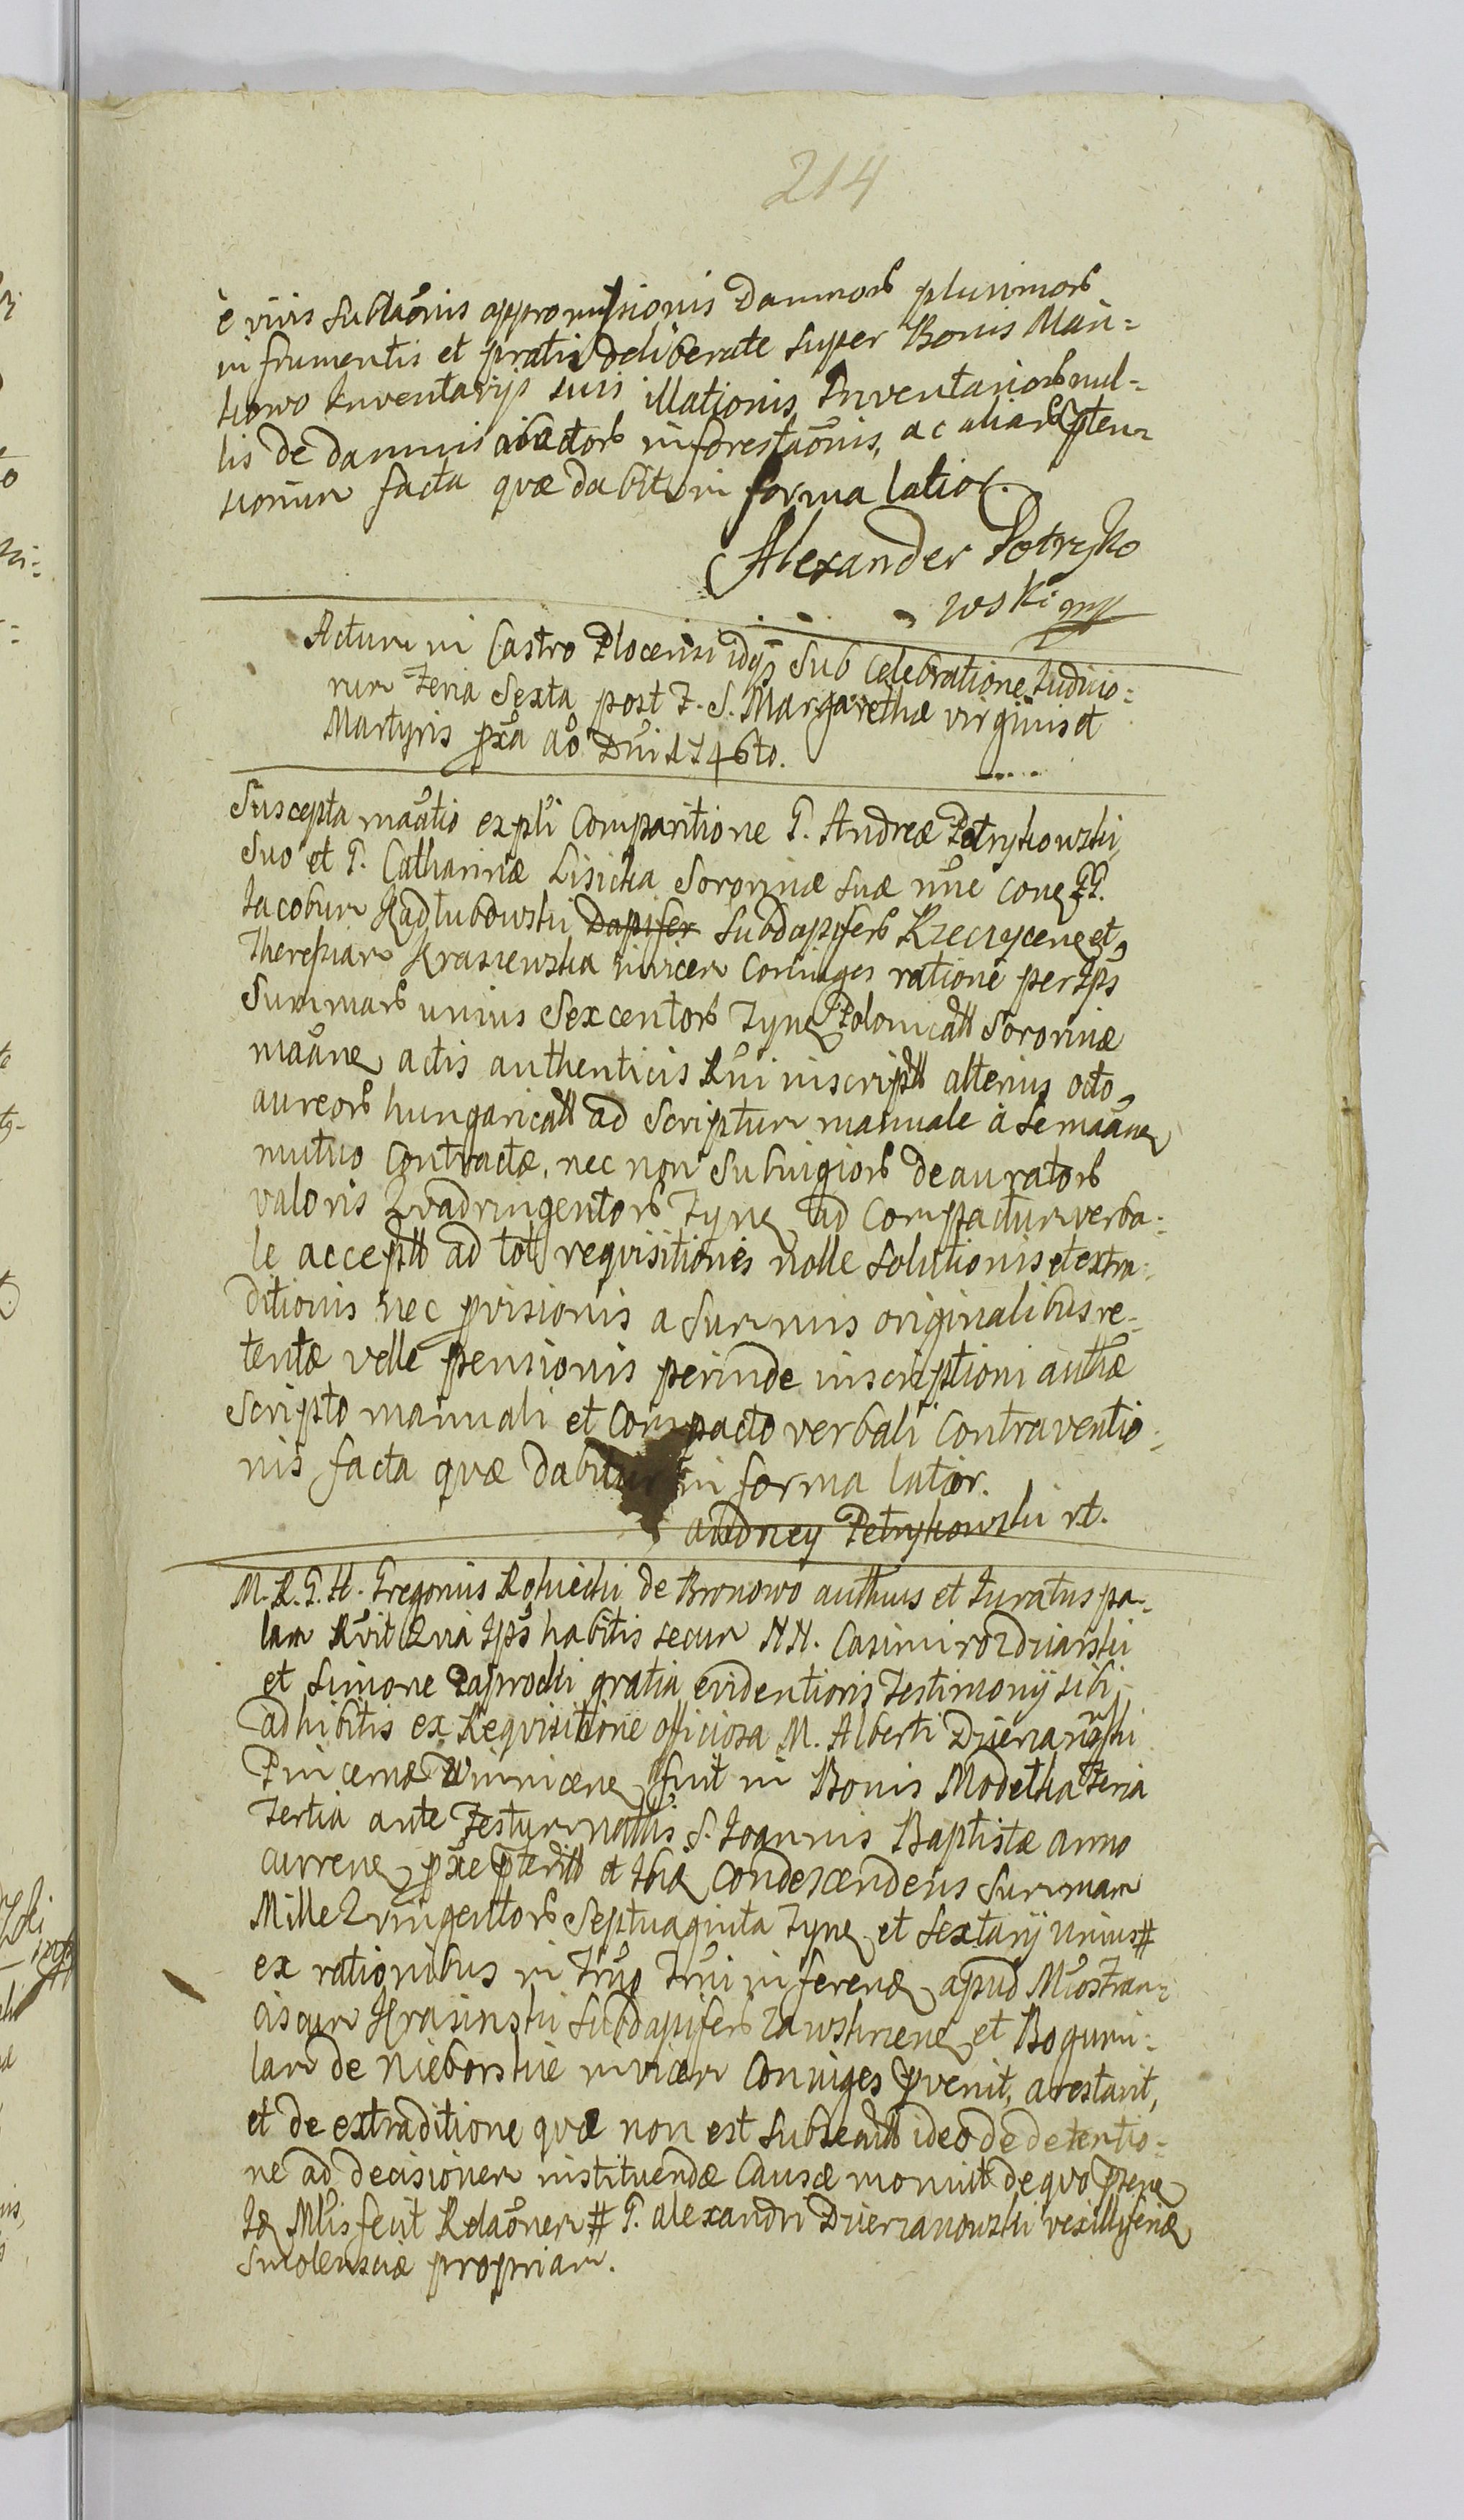 214
è vivis sublaõnis appromissionis Damnorb plurimorb
in frumentis et pratis deliberate super Bonis Man=
kowo Inventarijs suis illationis Inventariorb nul=
lis de damnis abactorb inforestaõnis, ac aliarb pten=
sionum facta quæ dabitur in forma latior.
Alexander Potrzyko
wski mp
Actum in Castro Plocensi idq3 sub Celebratione Judicio=
rum Feria Sexta post F. S. Margarethæ virginis et
Martyris pxa aõ Dni 1746to.
Suscepta maãtio expti Comparitione G. Andreæ Petrykowski
Suo et G. Catharinæ Lisicka Sororinæ suæ nũe cone GG.
Jacobum Kadłubowski Dapifer Subdapiferb Rzeczycene et
Theressiam Krasiewska invicem Coniuges ratione per Ips
Summarb unius Sexcentorb Fyne Polonicall Sororinæ
maãne actis authenticis Rñi inscriptt alterius octo
aureorb hungaricall ad Scriptum manuale à se maãne
mutuo Contractæ, nec non Subiugiorb deauratorb
valoris Quadringentorb Fyne ad Compactum verba=
le acceptt ad tot requisitiones nolle solutionis et extra=
ditionis nec pvisionis a Summis originalibus re=
tentæ velle pensionis perinde inscriptioni authæ
Scripto manuali et Compacto verbali Contraventio=
nis facta quæ dabitur in forma latior.
Andrzey Petrykowski rt.
M. R. G. H. Gregorius Rokicki de Bronowo authus et Juratus pa=
lam Rvit Quia Ips habitis secum NN. Casimiro Zdziarski
et Simone Paprocki gratia evidentioris Testimonij sibi
adhibitis ex Requisitione officiosa M. Alberti Dzierzanowski
Pincernæ Winnicene fuit in Bonis Modetka Feria
Tertia ante Festum nattis S. Joannis Baptistæ anno
currene pxe pteritt et Ibiq Condescendens Summam
Mille Quingentorb Septuaginta Fyne et Sextarij unius #
ex rationibus in Trmo Trmi inferene apud M. Fran=
ciscum Krasinski Subdapiferb Zawskrzene et Bogumi=
lam de Nieborskie invicem Coniuges pvenit, arestavit,
et de extraditione quæ non est subsecutt ideo de detentio=
ne ad decisionem instituendæ Causæ monuit de quo ptene
Iq Mtis fecit Relaõnem # G. Alexandri Dzierzanowski vexilliferiæ
Smolensciæ propriam.